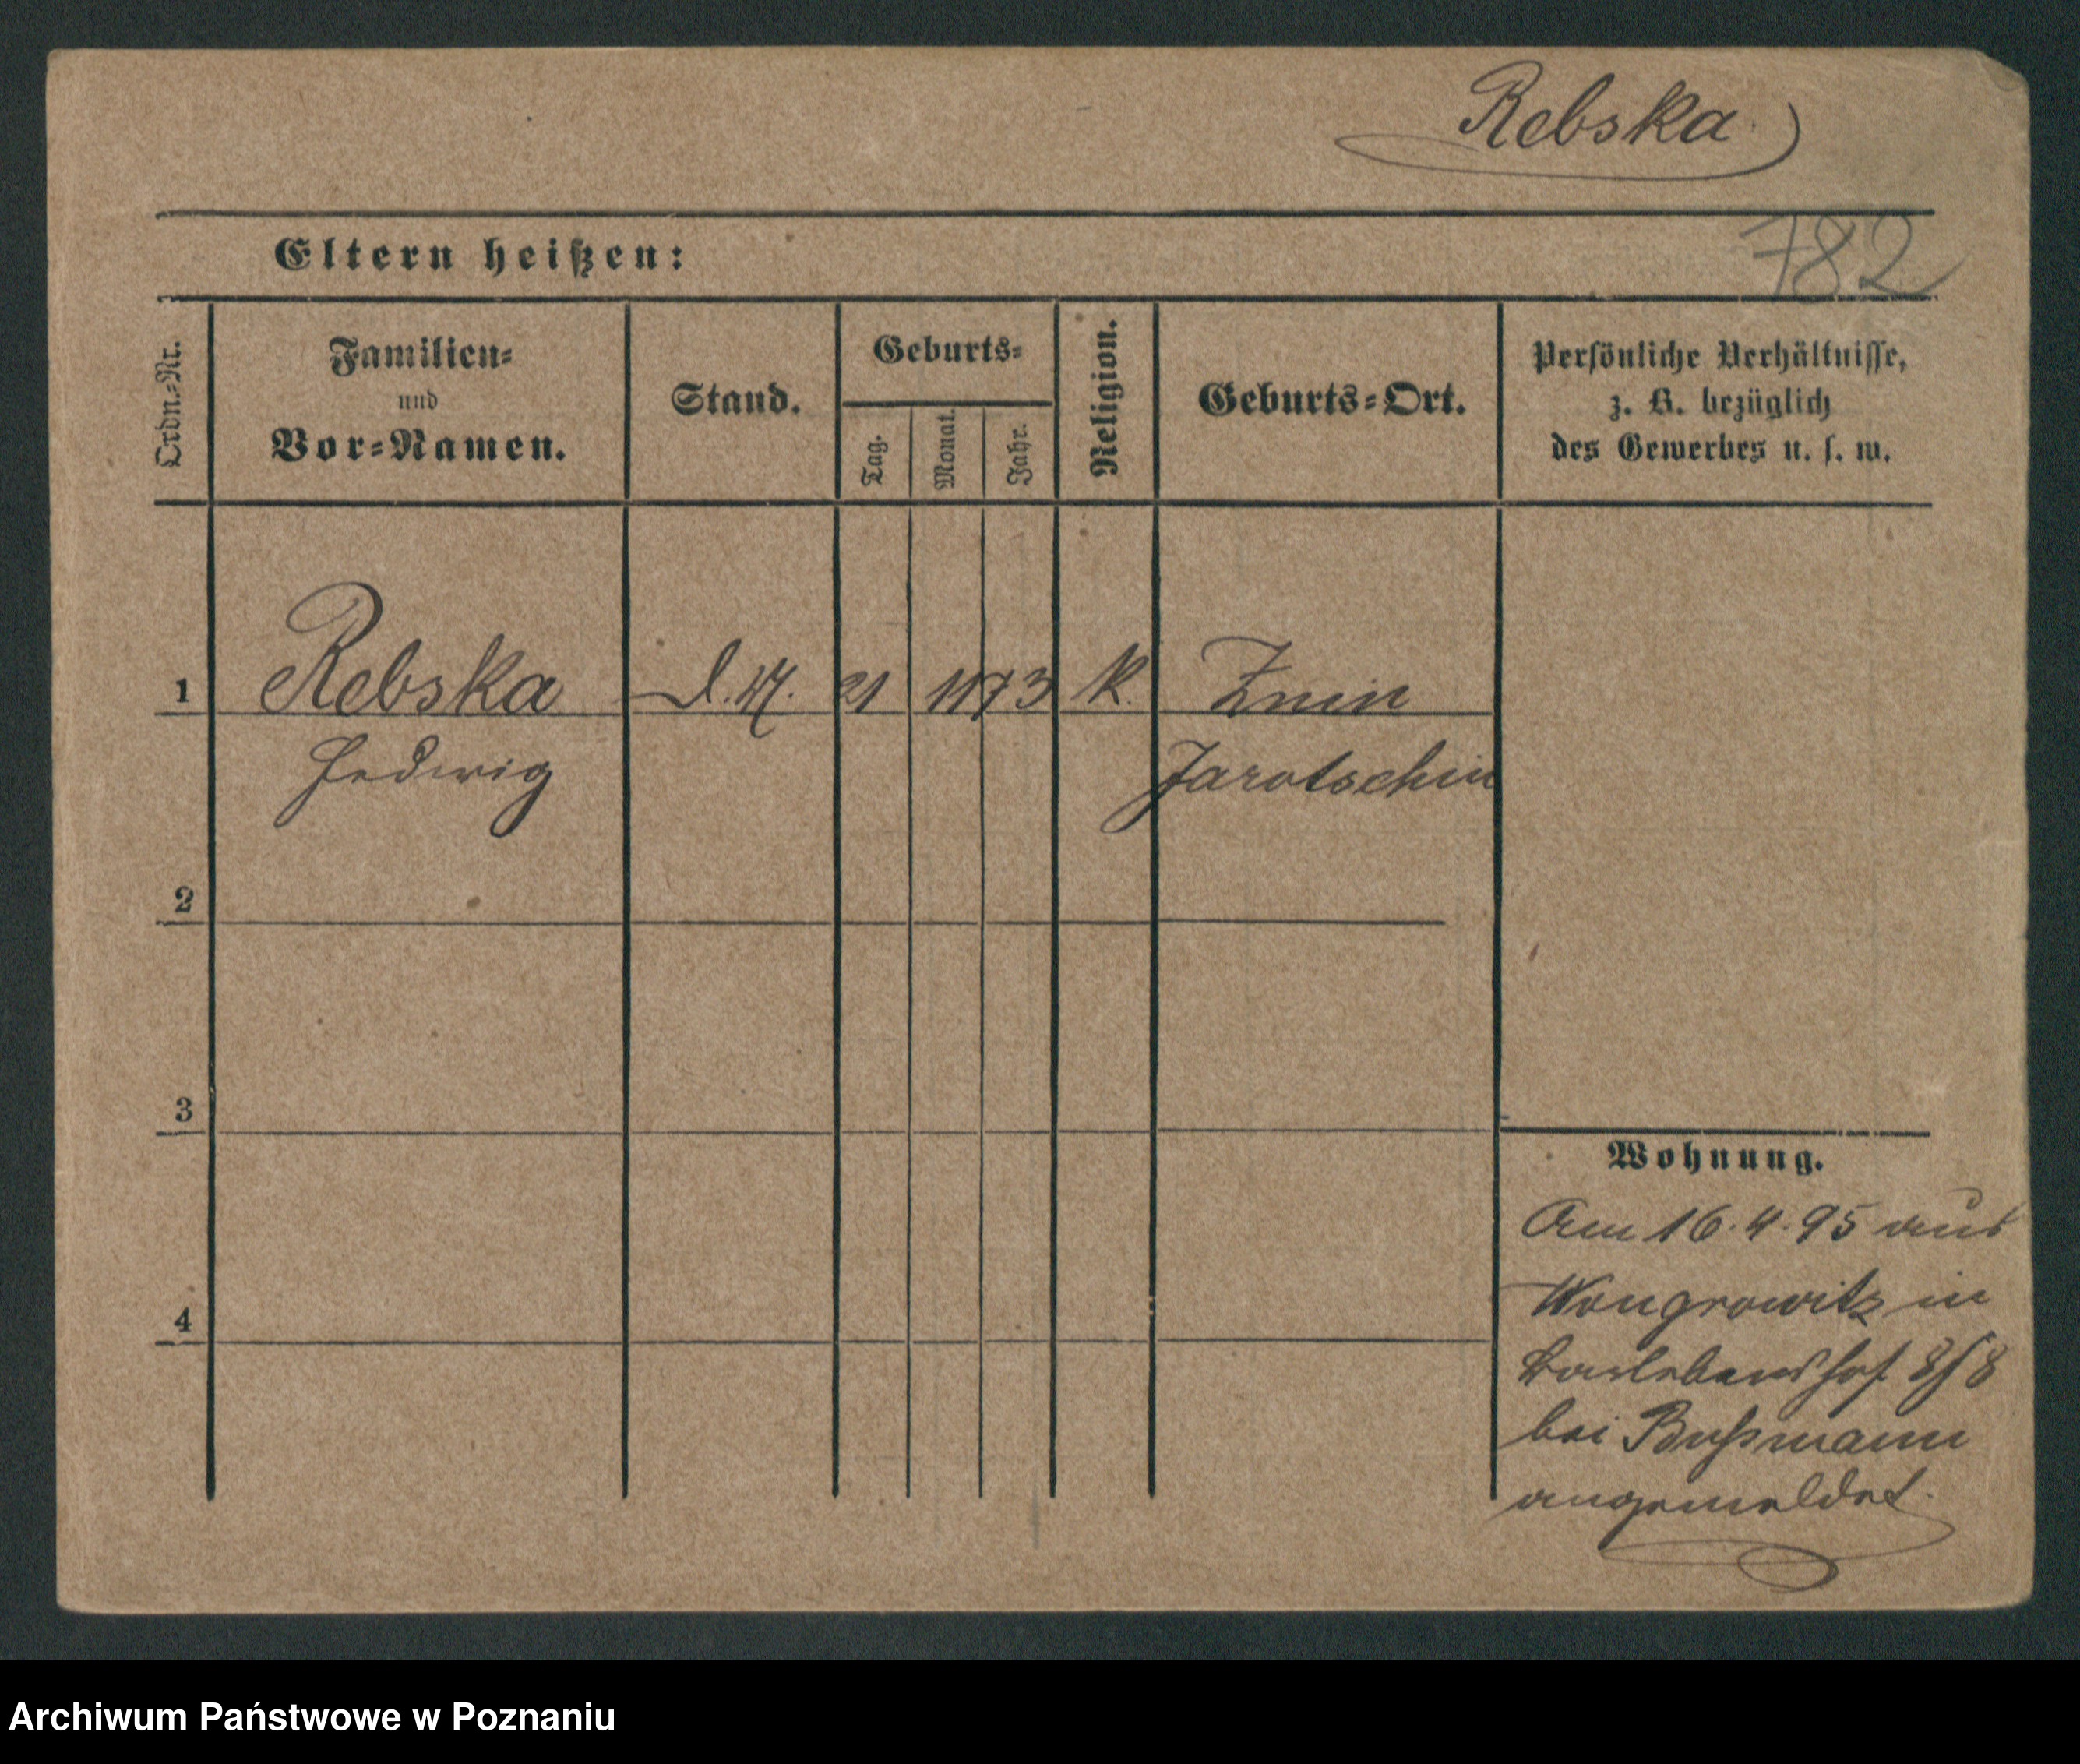 Rebska
782
Eltern heißen:
Ordn.-Nr.
Familien-
und
Vor-Namen.
Stand.
Geburts-
Tag.
Monat.
Jahr.
Religion.
Geburts-Ort.
Persönliche Verhältnisse,
z. B. bezüglich
des Gewerbes u. s. w.
1 Rebska d. M. 21 11 73 K. Znin
Hedwig Jarotschin
2
3
4
Wohnung.
Am 16.4.95 aus
Wongrowitz in
hof 8/8
bei Bußmann
angemeldet.
Archiwum Państwowe w Poznaniu